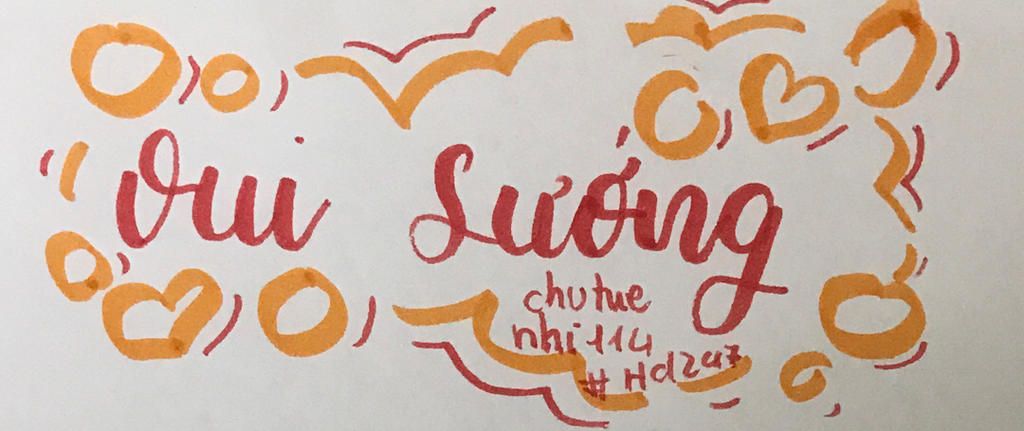 Vui Sướng
chutue
nhi114
#Hd247